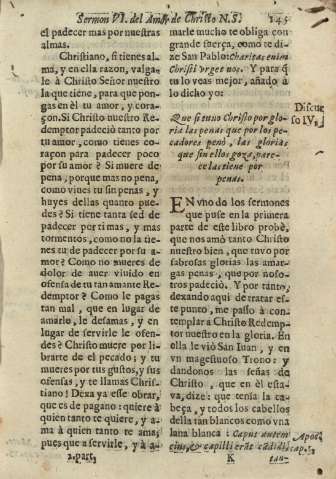 Sermon VI. del Amor de Christo N.S. 145
el padecer mas por nuestras
almas.
Christiano, si tienes al-
ma, y en ella razon, valga-
le à Christo Señor nuestro
la que tiene, para que pon-
gas en èl tu amor, y cora-
çon. Si Christo nuestro Re-
demptor padeciò tanto por
tu amor, como tienes co-
raçon para padecer poco
por su amor? Si muere de
pena, porque mas no pena,
como vives tu sin penas, y
huyes dellas quanto pue-
des? Si tiene tanta sed de
padecer por ti mas, y mas
tormentos, como no la tie-
nes tu de padecer por su a-
mor? Como no mueres de
dolor de aver vivido en
ofensa de tu tan amante Re-
demptor? Como le pagas
tan mal, que en lugar de
amarlo, le desamas, y en
lugar de servirle le ofen-
des? Christo muere por li-
brarte de el pecado; y tu
mueres por tus gustos, y sus
ofensas, y te llamas Chris-
tiano! Dexa ya esse obrar,
que es de pagano: quiere à
quien tanto te quiere, y a-
ma à quien tanto te ama;
pues que a servirle, y à a-
2. part.
marle mucho te obliga con
grande fuerça, como te di-
ze San Pablo: Charitas enim
Christi vrget nos. Y para q̃
tu lo veas mejor, añado à
lo dicho yo:
Discur
so IV.
Que si tuvo Christo por glo-
ria las penas que por los pe-
cadores penò, las glorias
que sin ellos goza, pare-
ce las tiene por
penas.
EN vno de los sermones
que puse en la primera
parte de este libro probè,
que nos amò tanto Christo
nuestro bien, que tuvo por
sabrosas glorias las amar-
gas penas, que por noso-
tros padeciò. Y por tanto,
dexando aqui de tratar es-
te punto, me passo à con-
templar à Christo Redemp-
tor nuestro en la gloria. En
olla le viò San Iuan, y en
vn magestuoso Trono: y
dandonos las señas de
Christo, que en èl esta-
va, dize: que tenia la ca-
beça, y todos los cabellos
della tan blancos como vna
lana blanca: Caput autem
eius, & capilli erãt cãdidi
Apoc.
cap.
K
tan-